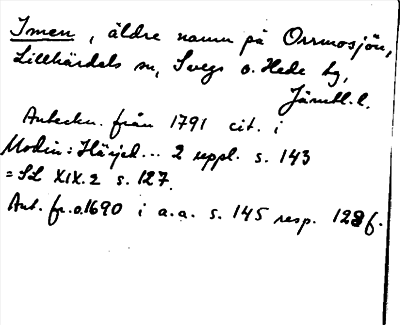 Imen, äldre namn på Orrmosjön,
Lillhärdals sn, Svegs o. Hede tg,
Jämtl. l.
Anteckn. från 1791 cit. i
Modin: Härjed... 2 uppl. s. 143
= SL XIX.2 s. 127.
Ant. fr. o. 1690 i a.a. s. 145 resp. 128 f.